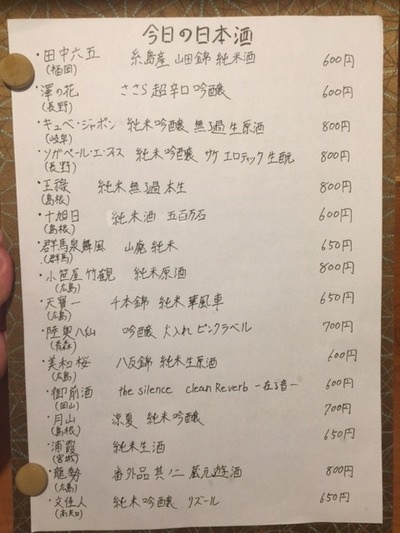 今日の日本酒
・田中六五 糸島産 山田錦 純米酒 600円
(福岡)
・澤の花 ささら 超辛口 吟醸 600円
(長野)
・キュベ・ジャポン 純米吟醸 無ろ過生原酒 800円
(岐阜)
・ソガペールエ・フィス 純米吟醸 サケ エロティック 生酛 800円
(長野)
・王祿 純米 無ろ過 本生 800円
(島根)
・十旭日 純米酒 五百万石 600円
(島根)
・群馬泉舞風 山廃 純米 650円
(群馬)
・小笹屋 竹鶴 純米原酒 800円
(広島)
・天寶一 千本錦 純米 華風車 650円
(広島)
・陸奥八仙 吟醸 火入れ ピンクラベル 700円
(青森)
・美和桜 八反錦 純米生原酒 600円
(広島)
・御前酒 the silence clean Reverb -在る音- 600円
(岡山)
・月山 涼夏 純米 吟醸 700円
(島根)
・浦霞 純米生酒 650円
(宮城)
・龍勢 番外品 其ノ二 蔵元遊酒 800円
(広島)
・文佳人 純米吟醸 リズール 650円
(高知)